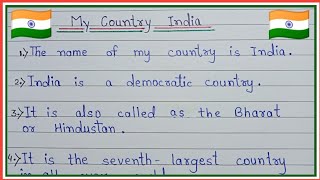 My Country India
1.> The name of my country is India.
2.> India is a democratic country.
3.> It is also called as the Bharat
or Hindustan.
4.> It is the seventh-largest country
in all